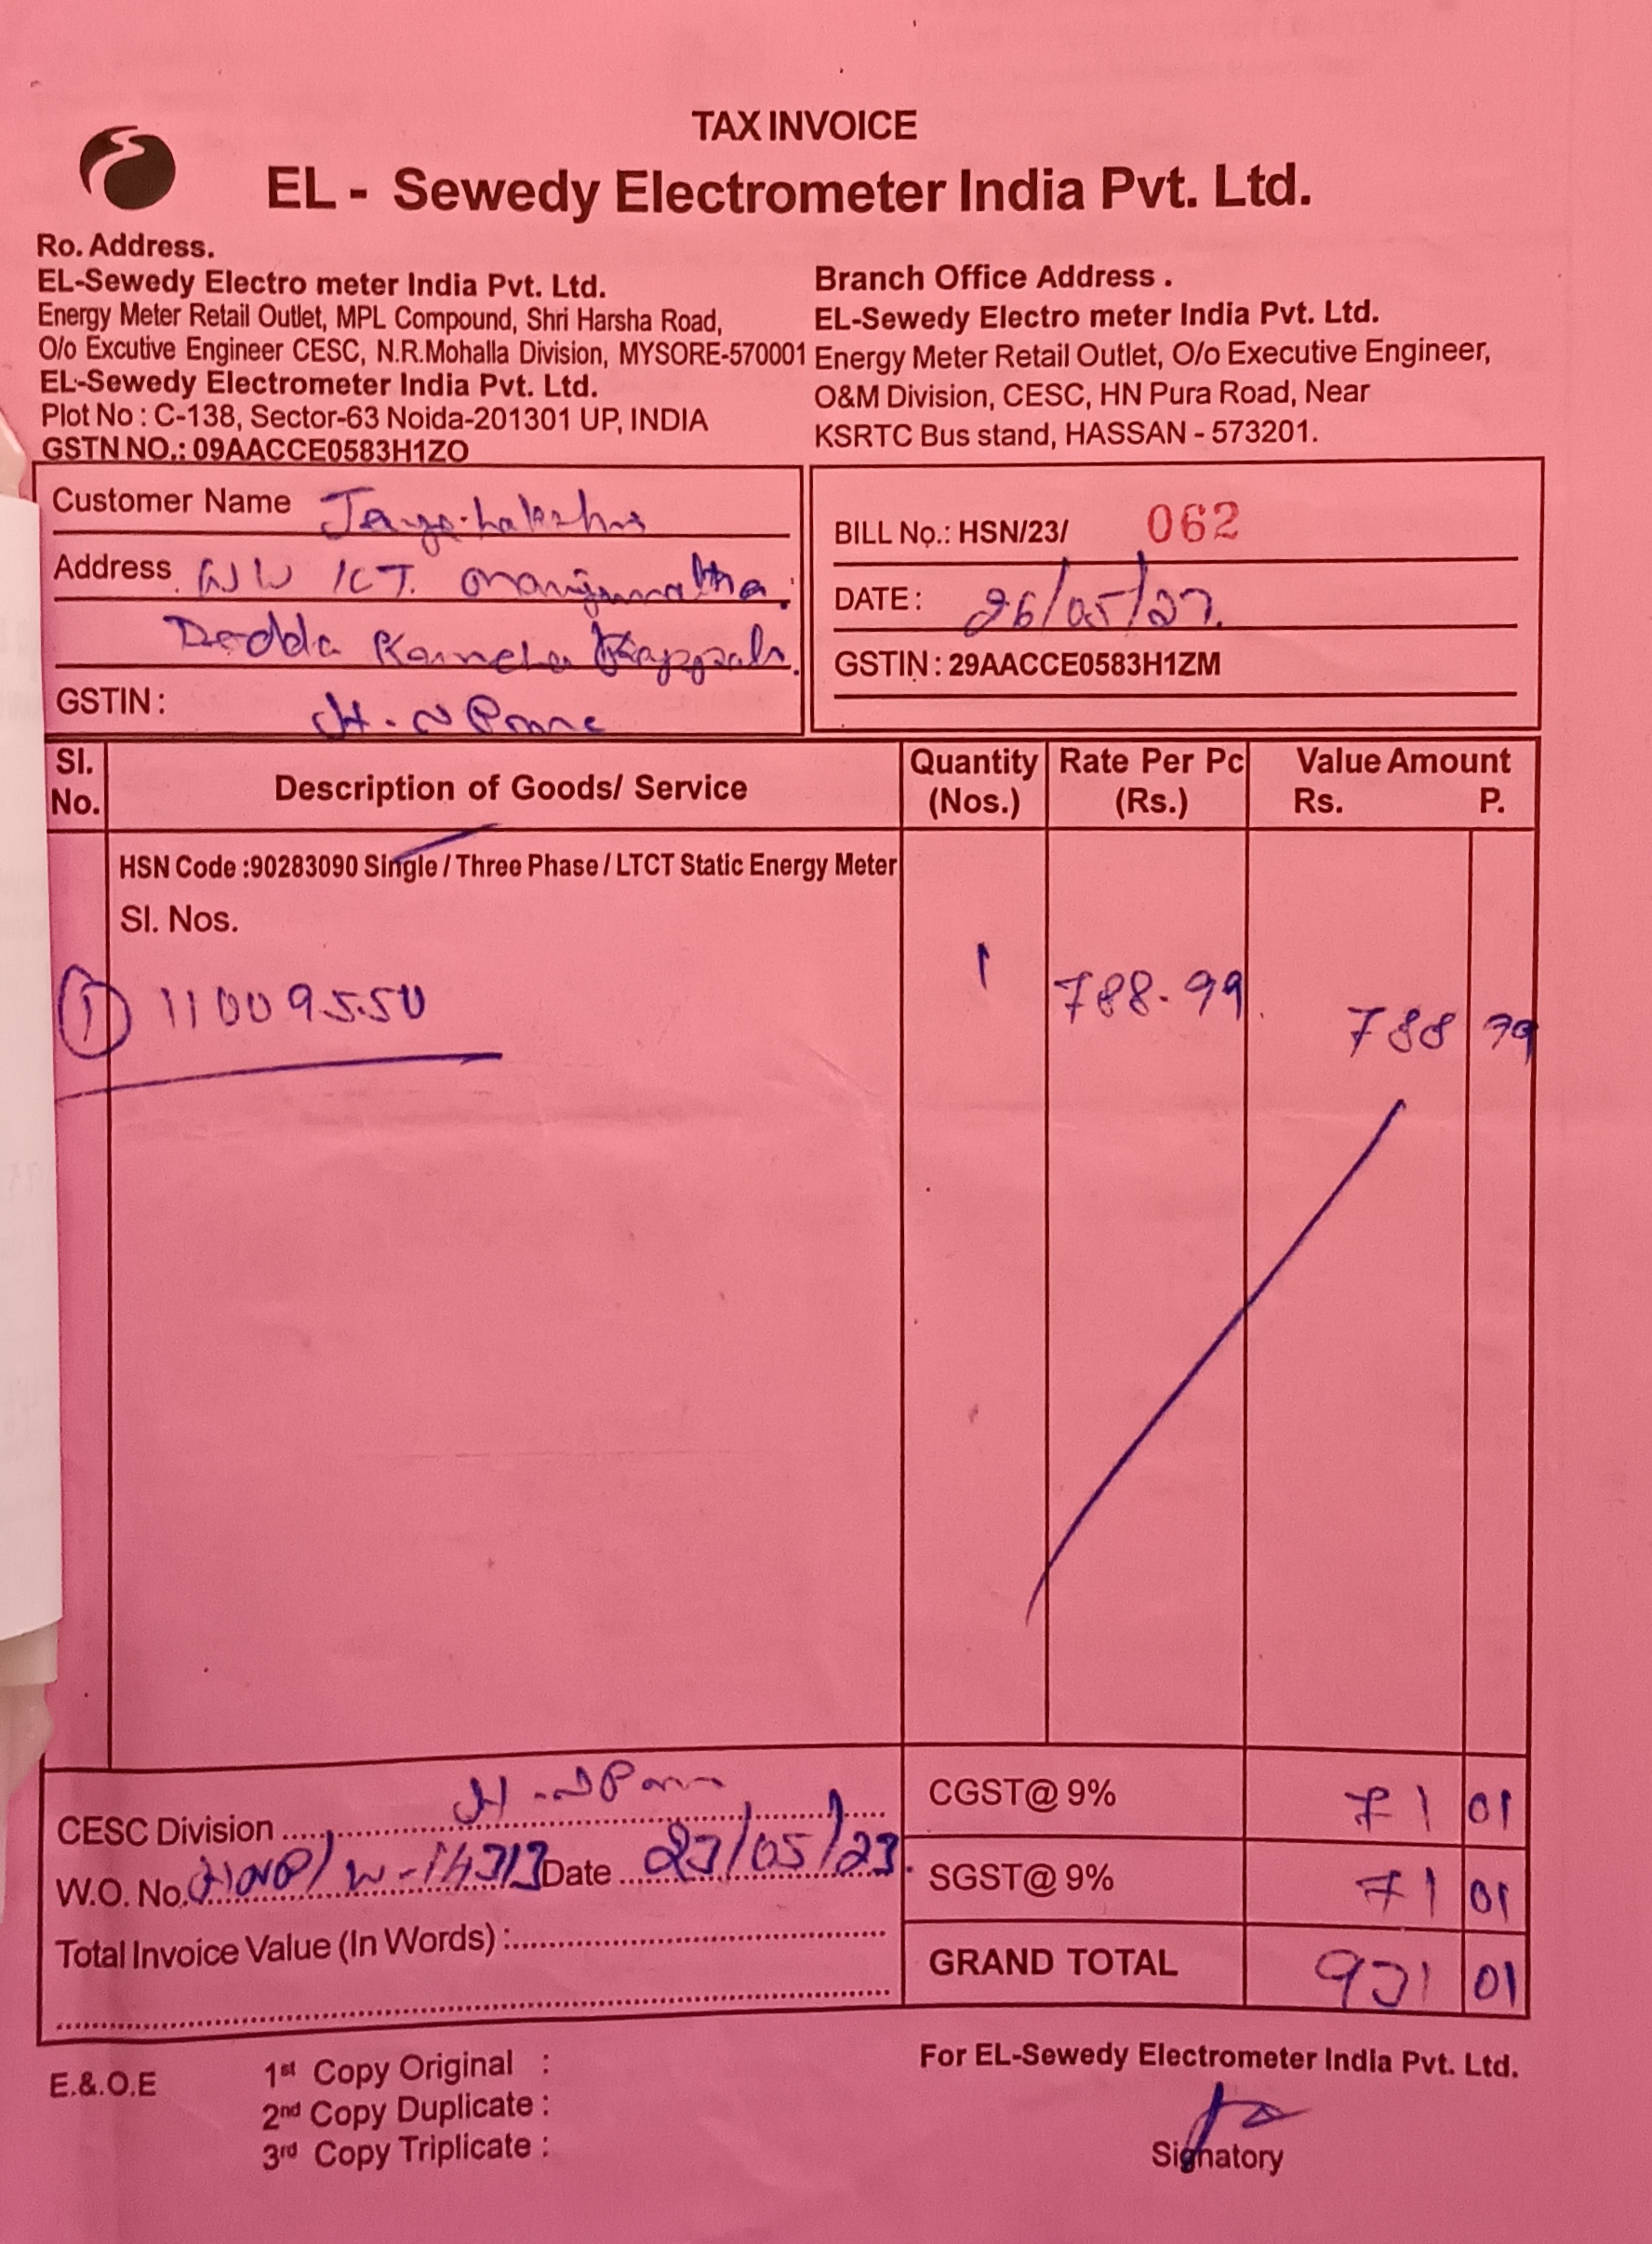 TAX INVOICE
EL - Sewedy Electrometer India Pvt. Ltd.
Ro. Address.
EL-Sewedy Electro meter India Pvt. Ltd.
Energy Meter Retail Outlet, MPL Compound, Shri Harsha Road,
O/o Excutive Engineer CESC, N.R.Mohalla Division, MYSORE-570001
EL-Sewedy Electrometer India Pvt. Ltd.
Plot No : C-138, Sector-63 Noida-201301 UP, INDIA
GSTN NO.: 09AACCE0583H1ZO
Branch Office Address .
EL-Sewedy Electro meter India Pvt. Ltd.
Energy Meter Retail Outlet, O/o Executive Engineer,
O&M Division, CESC, HN Pura Road, Near
KSRTC Bus stand, HASSAN - 573201.
Customer Name
Address
Dodda
GSTIN :
BILL No.: HSN/23/ 062
DATE : 26/05/23.
GSTIN : 29AACCE0583H1ZM
Sl. No. Description of Goods/ Service Quantity (Nos.) Rate Per Pc (Rs.) Value Amount Rs. P.
HSN Code :90283090 Single / Three Phase / LTCT Static Energy Meter
Sl. Nos.
1 11009550 1 788.99 788 99
CESC Division
W.O. No. Date 23/05/23.
Total Invoice Value (In Words) :
CGST@ 9% 71 01
SGST@ 9% 71 01
GRAND TOTAL 931 01
E.&.O.E
1st Copy Original :
2nd Copy Duplicate :
3rd Copy Triplicate :
For EL-Sewedy Electrometer India Pvt. Ltd.
Signatory